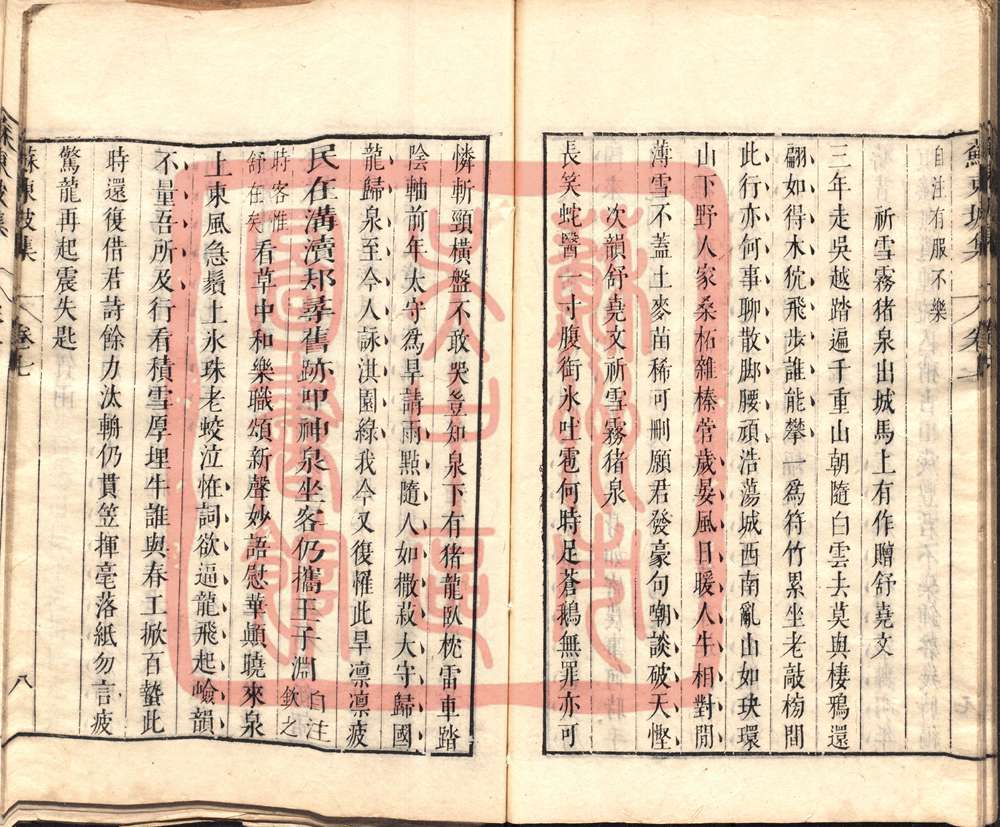 蘇東坡集 卷七
自注有服不樂
祈雪霧猪泉出城馬上有作贈舒堯文
三年走吳越踏遍千重山朝隨白雲去莫與棲鴉還
翩如得木狖飛步誰能攀爲符竹累坐老敲榜間
此行亦何事聊散脚腰頑浩蕩城西南亂山如玦環
山下野人家桑柘雜榛菅歲晏風日暖人牛相對閒
薄雪不蓋土麥苗稀可刪願君發豪句嘲談破天慳
次韻舒堯文祈雪霧猪泉
長笑蛇醫一寸腹銜氷吐雹何時足蒼鵝無罪亦可
憐斬頸橫盤不敢哭豈知泉下有猪龍臥枕雷車踏
陰軸前年太守爲旱請雨點隨人如撒菽太守歸國
龍歸泉至今人詠淇園綠我今又復罹此旱凛凛疲
民在溝瀆却尋舊跡叩神泉坐客仍攜王子淵自注欽之
時客惟舒在矣看草中和樂職頌新聲妙語慰華顛曉來泉
上東風急鬚上氷珠老蛟泣怪詞欲逼龍飛起嶮韻
不量吾所及行看積雪厚埋牛誰與春工掀百蟄此
時還復借君詩餘力汰輈仍貫笠揮毫落紙勿言疲
驚龍再起震失匙
蘇東坡集 卷七 八
蘇州市
圖書館